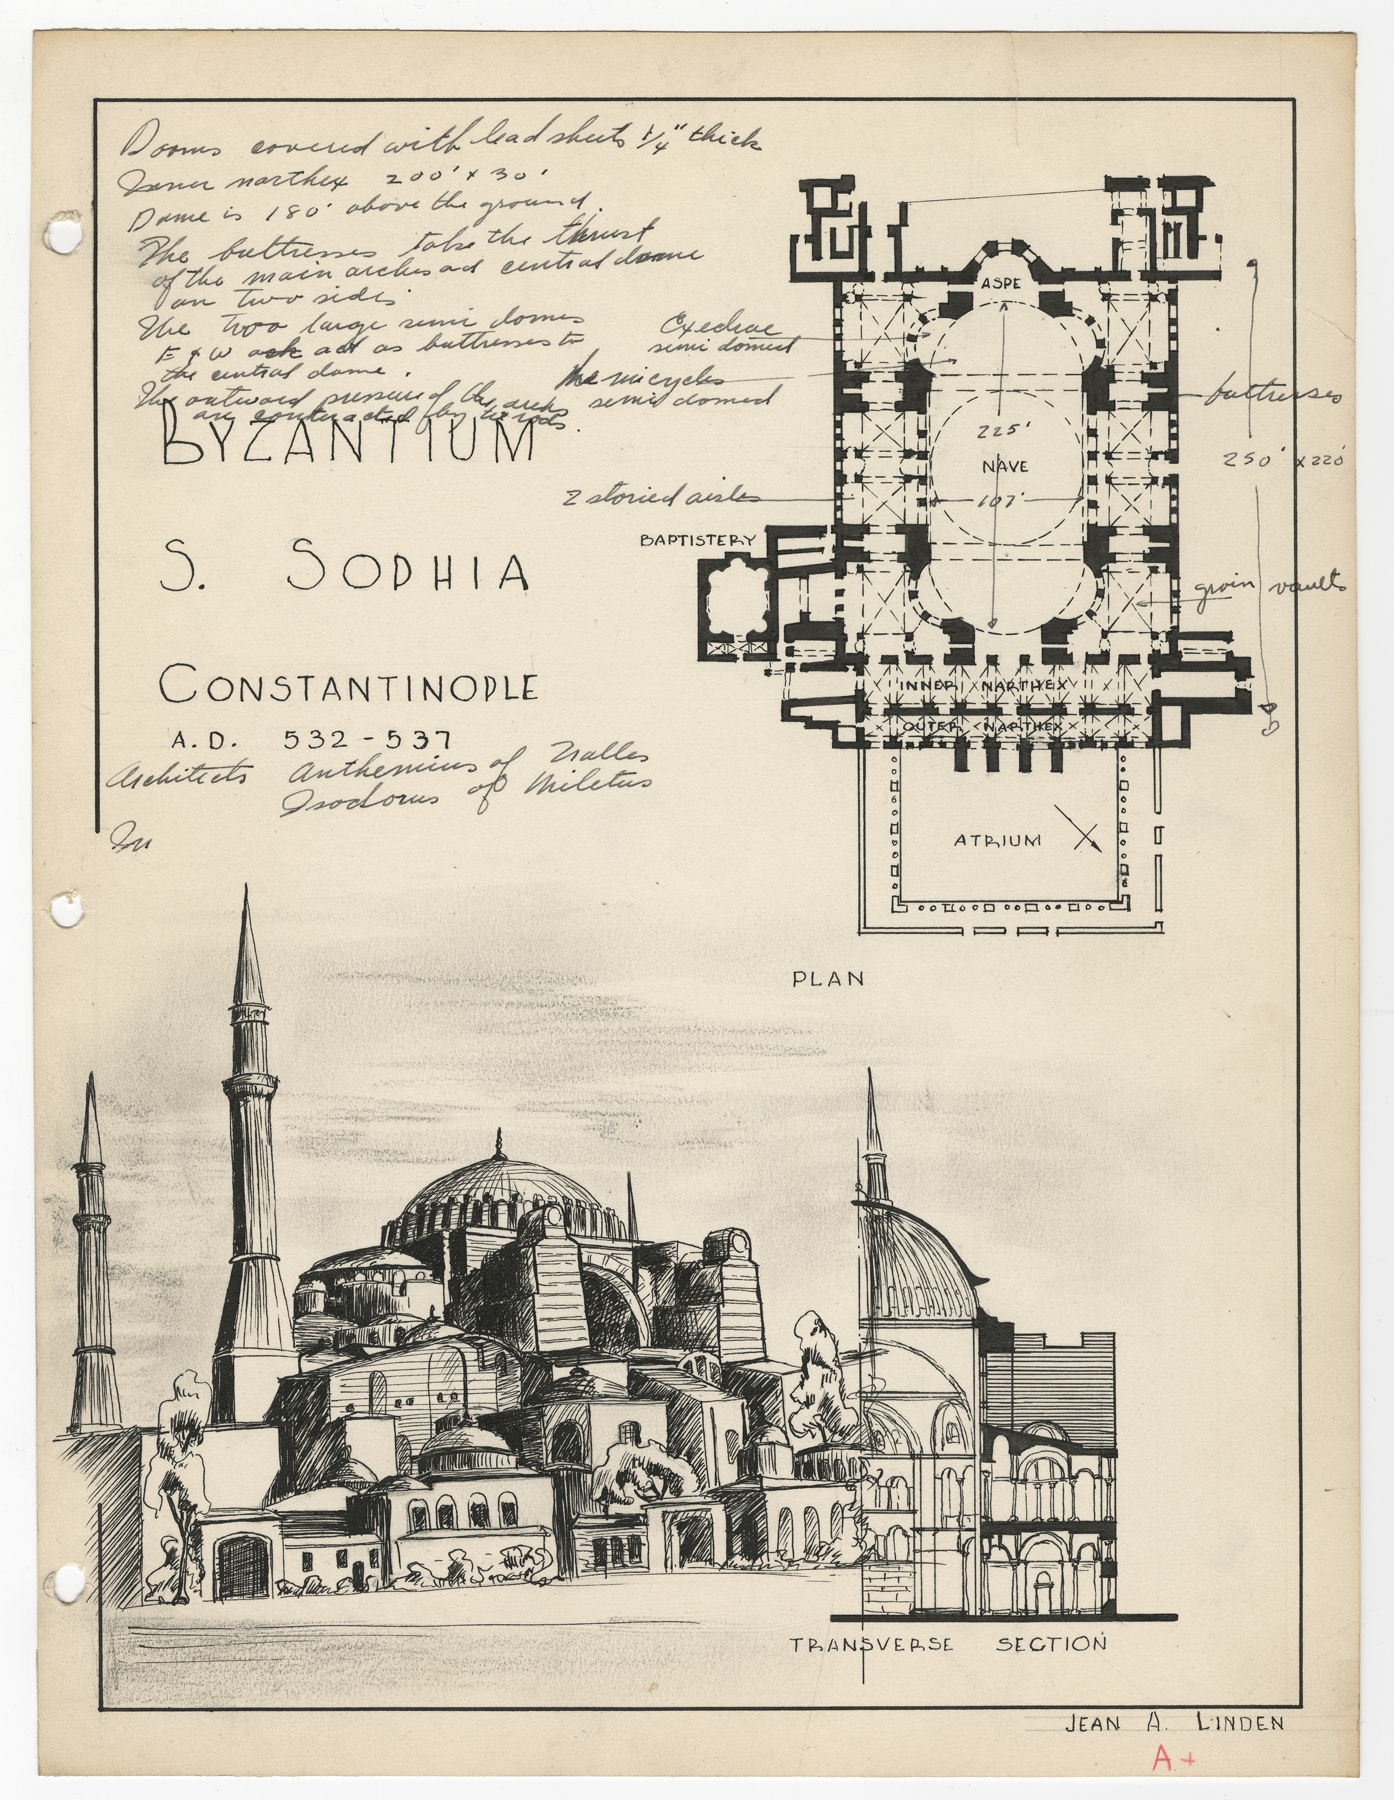 Dooms covered with lead sheets 1/4" thick
Inner narthex 200' x 30'
Dome is 180' above the ground.
The buttresses take the thrust
of the main arches ad central dome
on two sides
The two large semi domes
E & W ack act as buttresses to
the central dome.
The outward pressure of the arches
are conteracted by tie rods.
BYZANTIUM
S. SOPHIA
CONSTANTINOPLE
A.D. 532-537
Architects Anthemius of Tralles
Isodorus of Miletus
In
Exedrae
semi domed
Hemicycles
semi domed
2 storied aisles
BAPTISTERY
ASPE
225'
NAVE
107'
buttresses
250' x 220'
groin vaults
INNER NARTHEX
OUTER NARTHEX
ATRIUM
PLAN
TRANSVERSE SECTION
JEAN A. LINDEN
A+